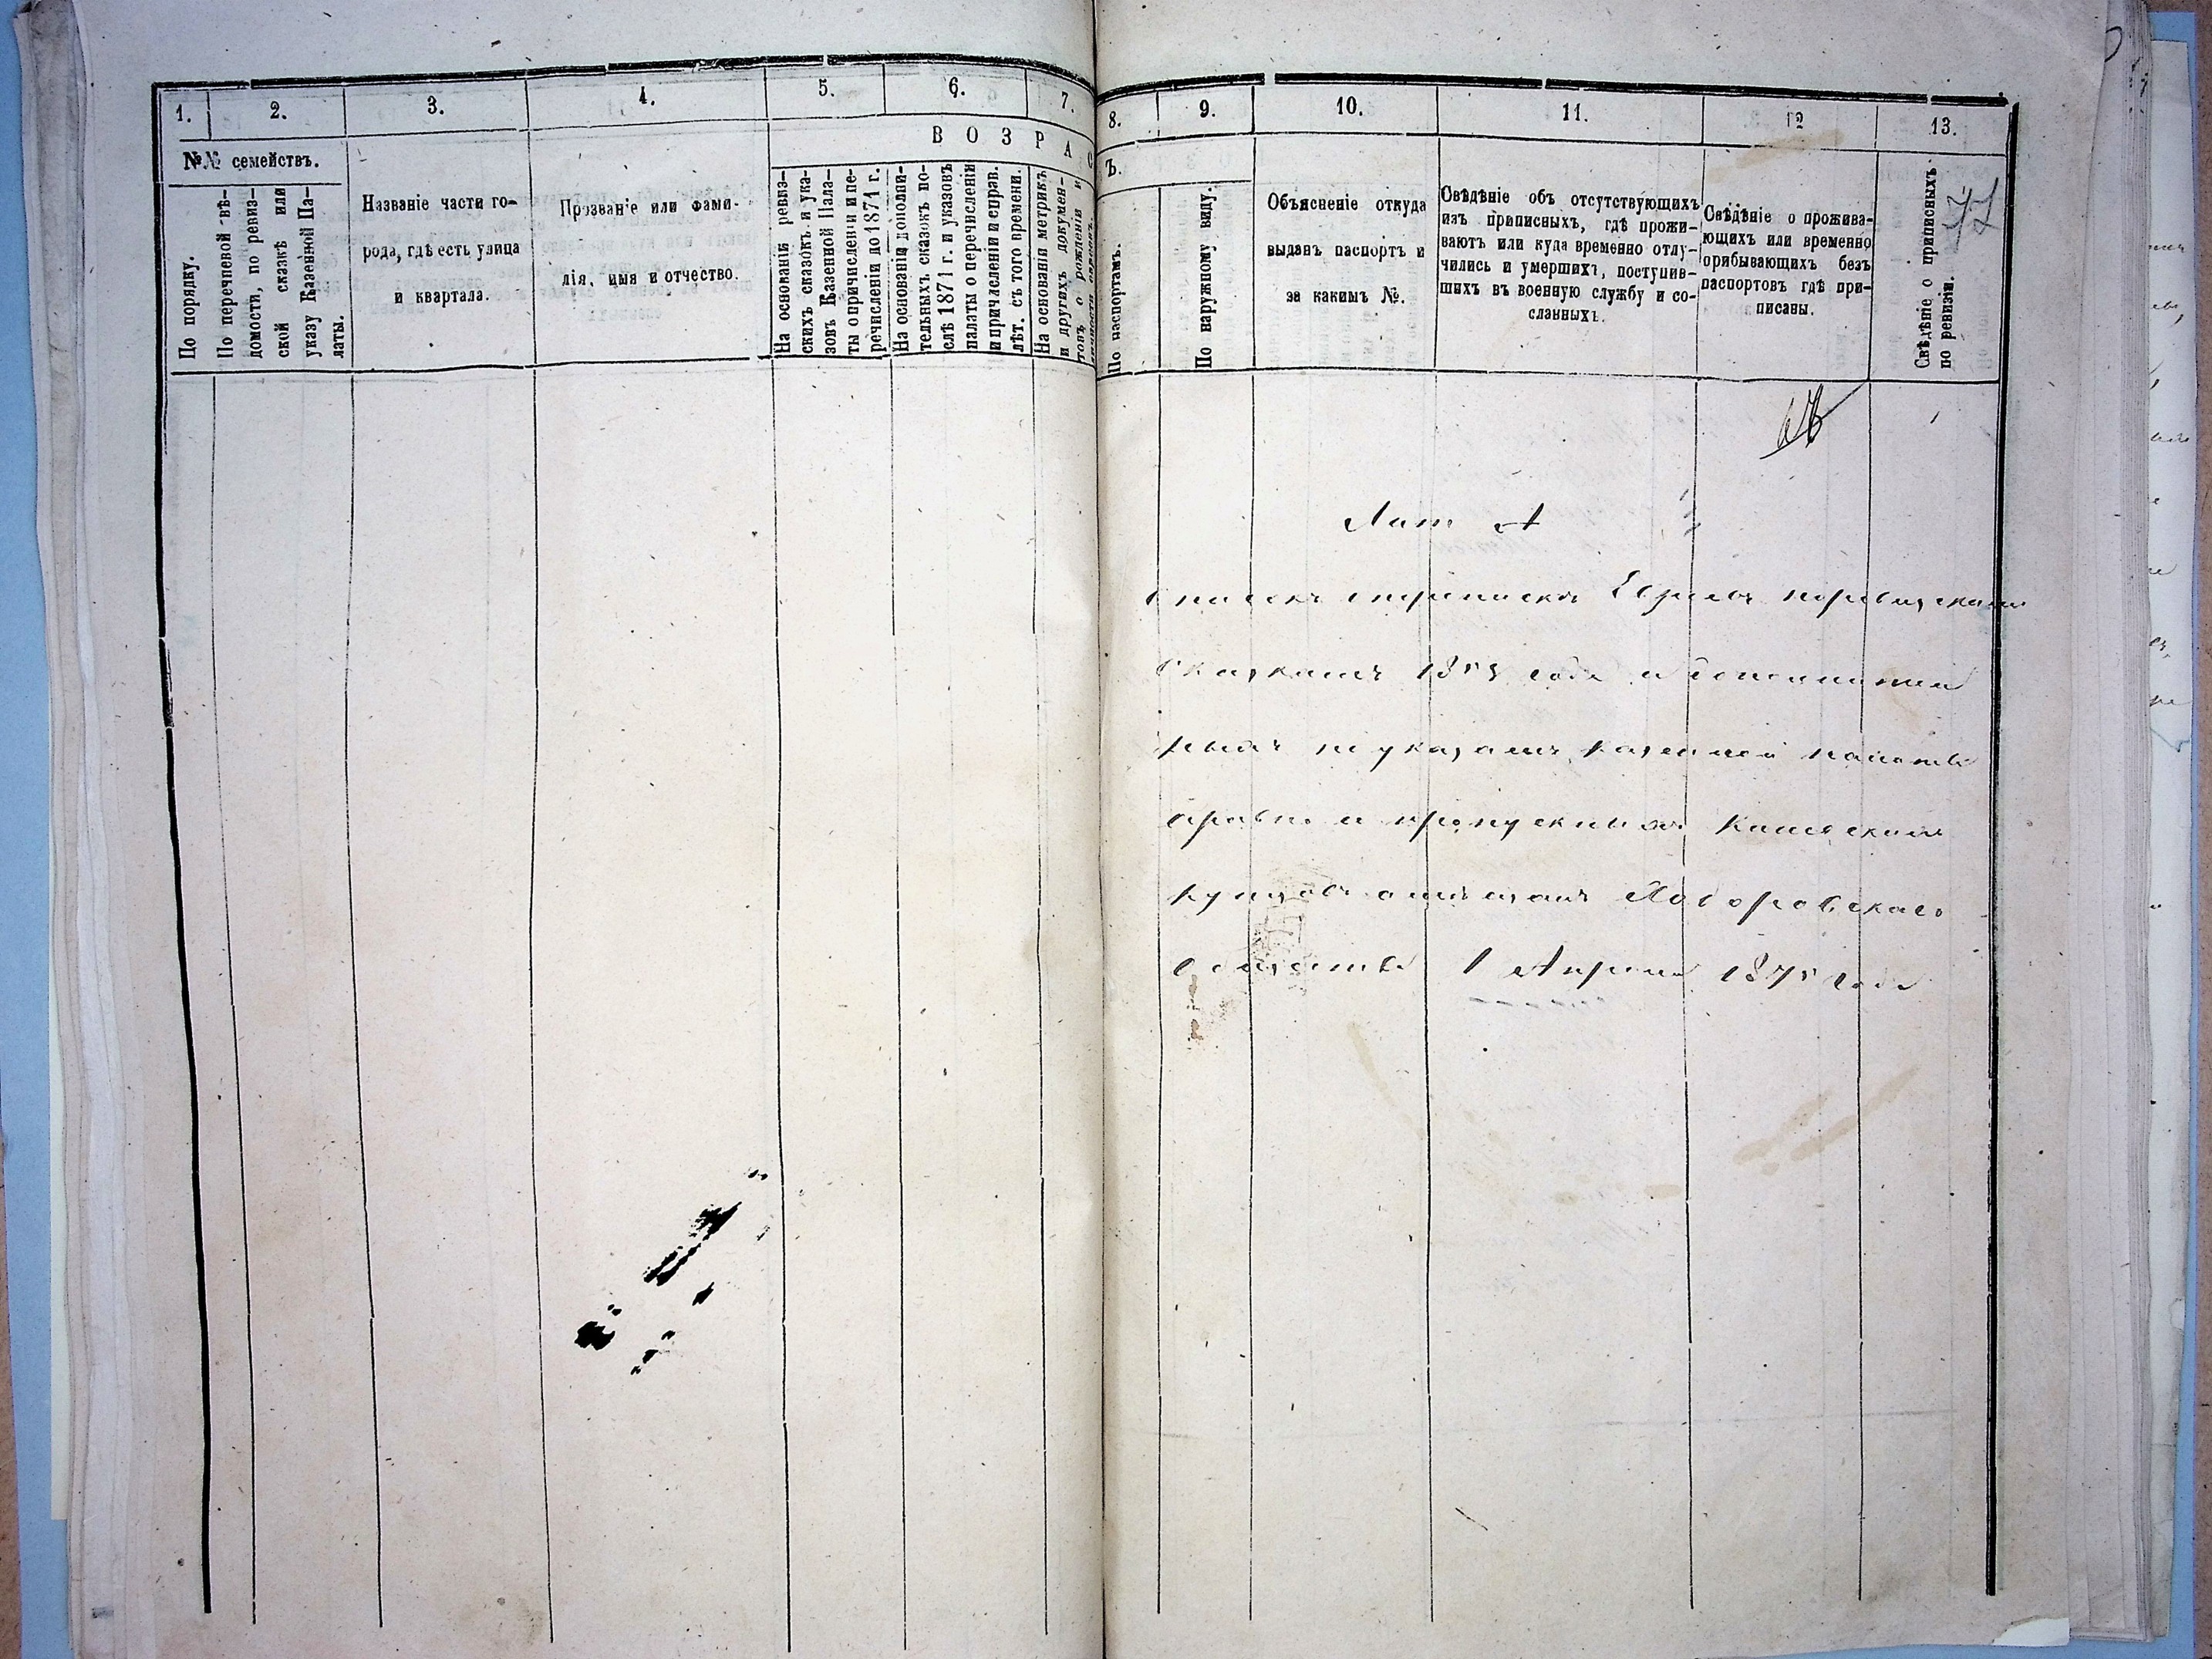 1. 2. 3. 4. 5. 6. 7.
ВОЗРАС
№№ семействъ.
По порядку.
По перечневой вѣ-
домости, по ревиз-
ской сказкѣ или
указу Казенной Па-
латы.
Названіе части го-
рода, гдѣ есть улица
и квартала.
Прозваніе или фами-
лія, имя и отчество.
На основаніи ревиз-
скихъ сказокъ и ука-
зовъ Казенной Пала-
ты о причисленіи и пе-
речисленіи до 1871 г.
На основаніи дополни-
тельныхъ сказокъ по-
слѣ 1871 г. и указовъ
палаты о перечисленіи
и причисленіи и справ.
лѣт. съ того времени.
На основаніи метрикъ
и другихъ докумен-
товъ о рожденіи и
8. 9. 10. 11. 12 13.
Ъ.
По паспортамъ.
По наружному виду.
Объясненіе откуда
выданъ паспортъ и
за какимъ №.
Свѣдѣніе объ отсутствующихъ
изъ приписныхъ, гдѣ прожи-
ваютъ или куда временно отлу-
чились и умершихъ, поступив-
шихъ въ военную службу и со-
сланныхъ.
Свѣдѣніе о прожива-
ющихъ или временно
прибывающихъ безъ
паспортовъ гдѣ при-
писаны.
Свѣдѣніе о приписныхъ
по ревизіи.
Лит А
Списокъ Евреевъ поревизскимъ
Сказкамъ года и
поуказамъ казенной палаты
равно и
купцовъ Ягоровскаго
общества 1 Апреля 1875 года